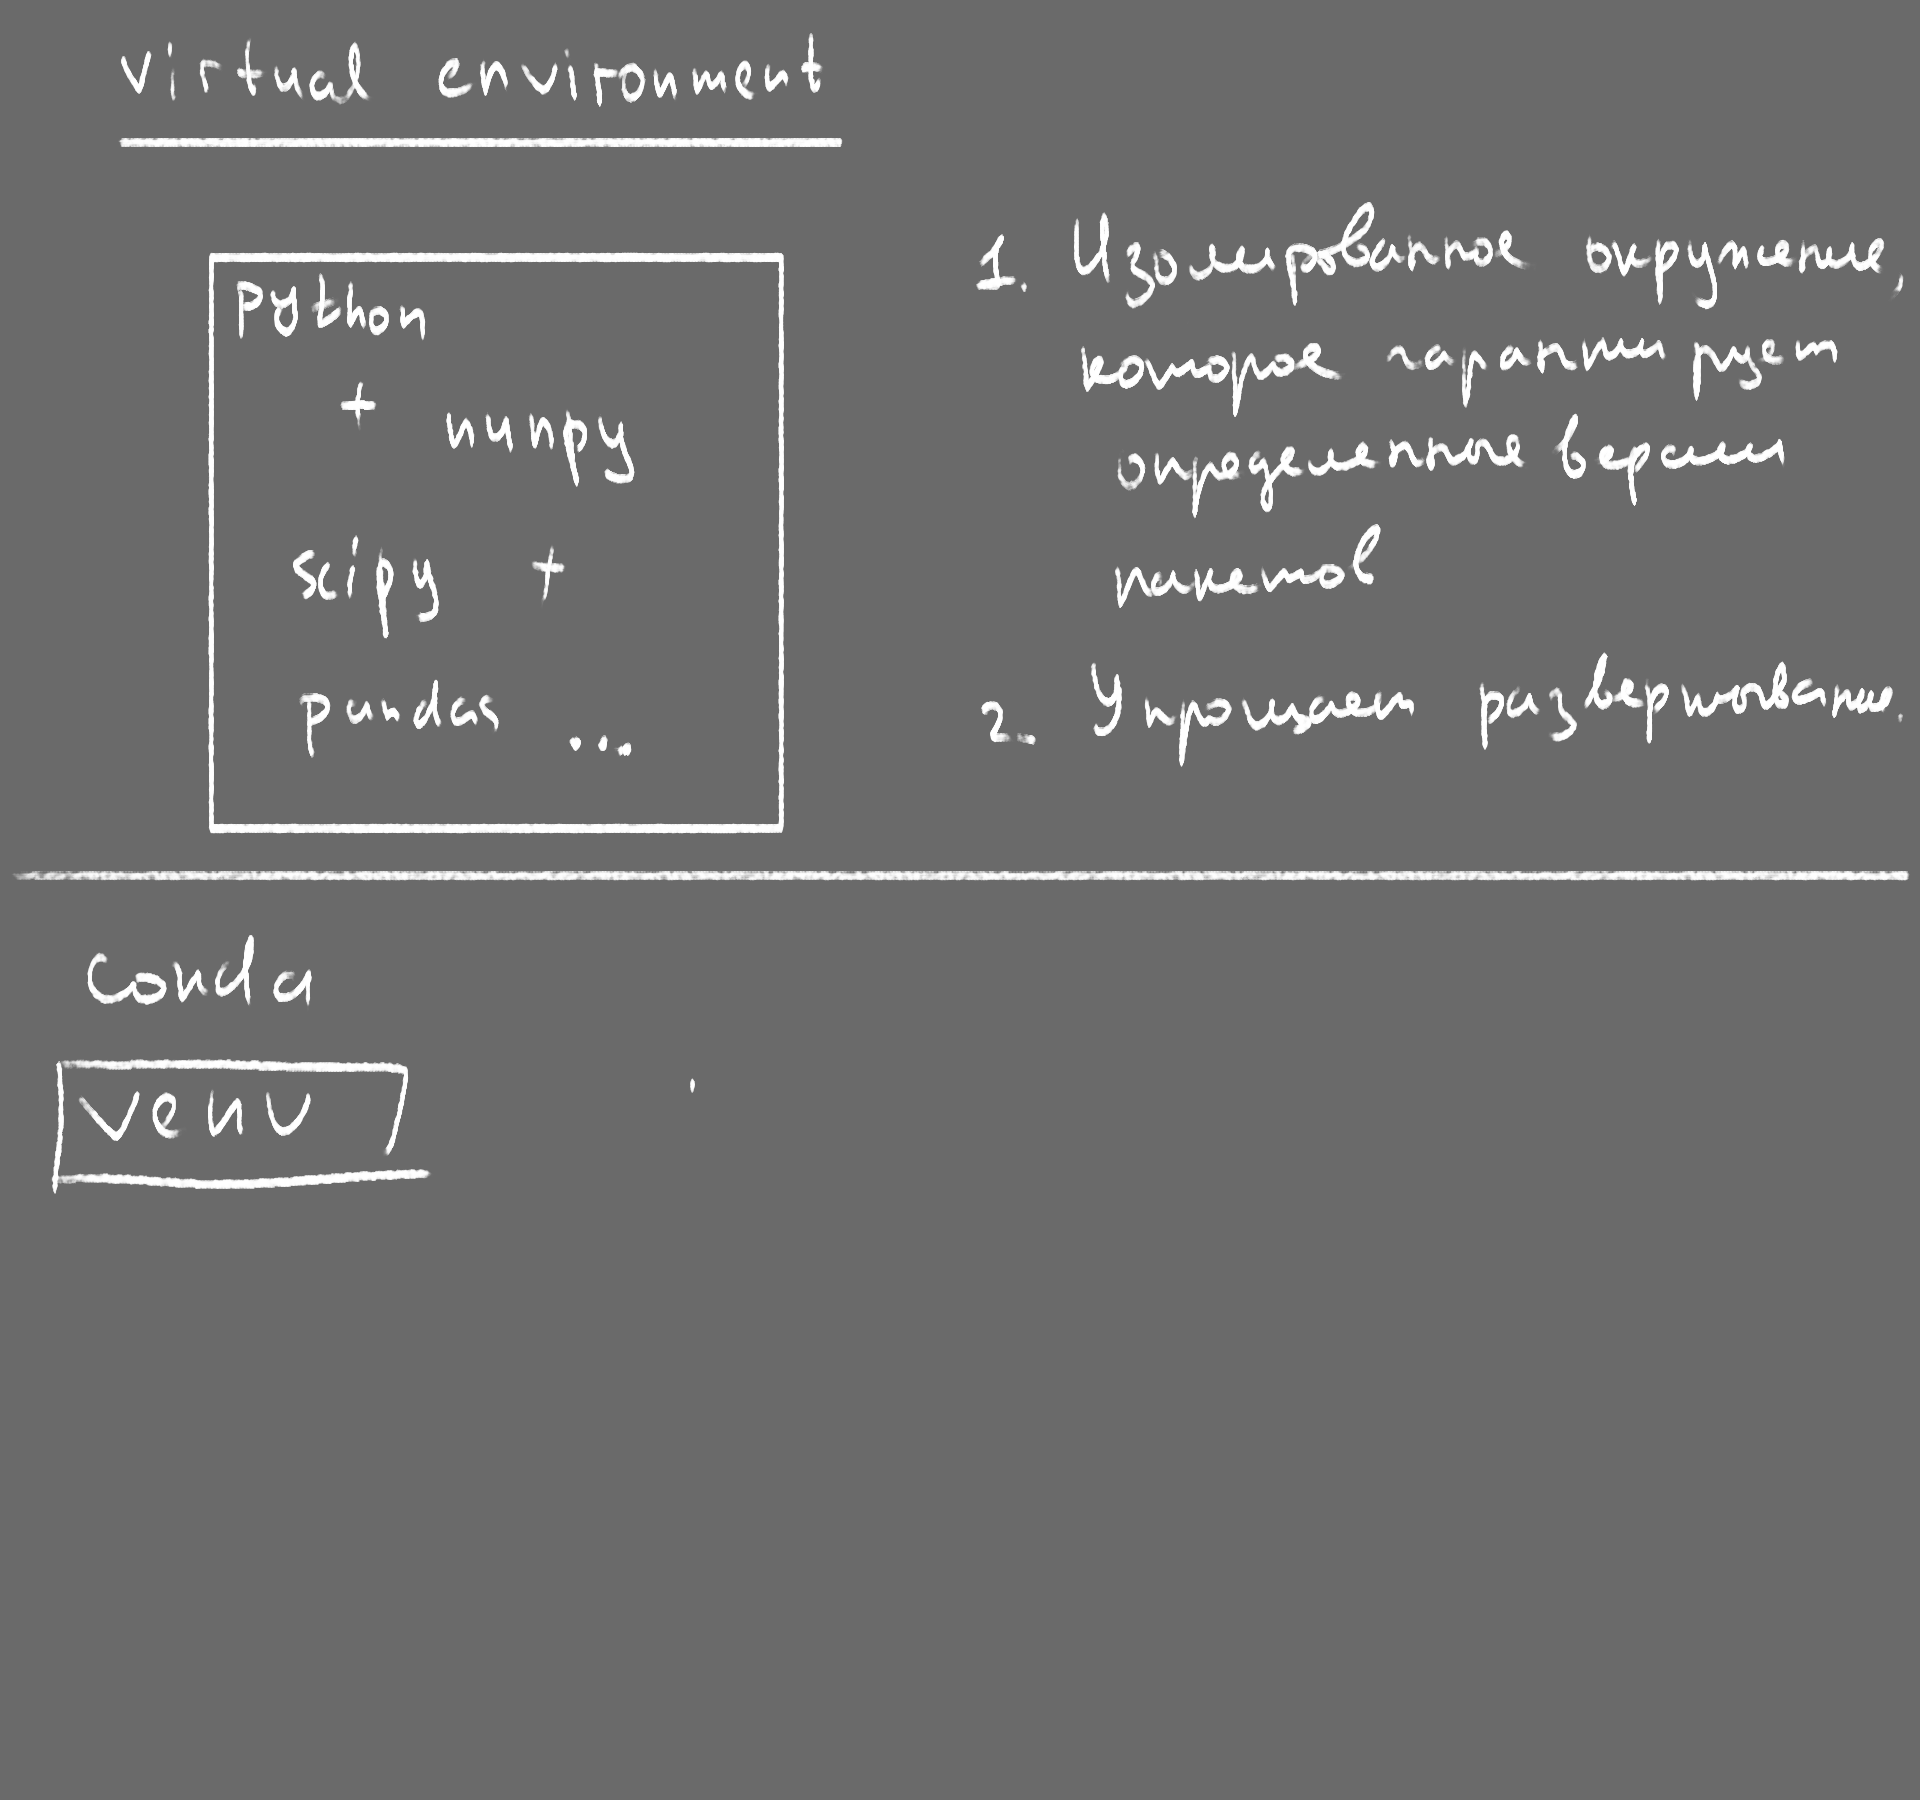 virtual environment
Python
+ numpy
scipy +
pandas ...
1. Изолированное окружение,
которое гарантирует
определенные версии
пакетов
2. Упрощает развертование.
conda
venv